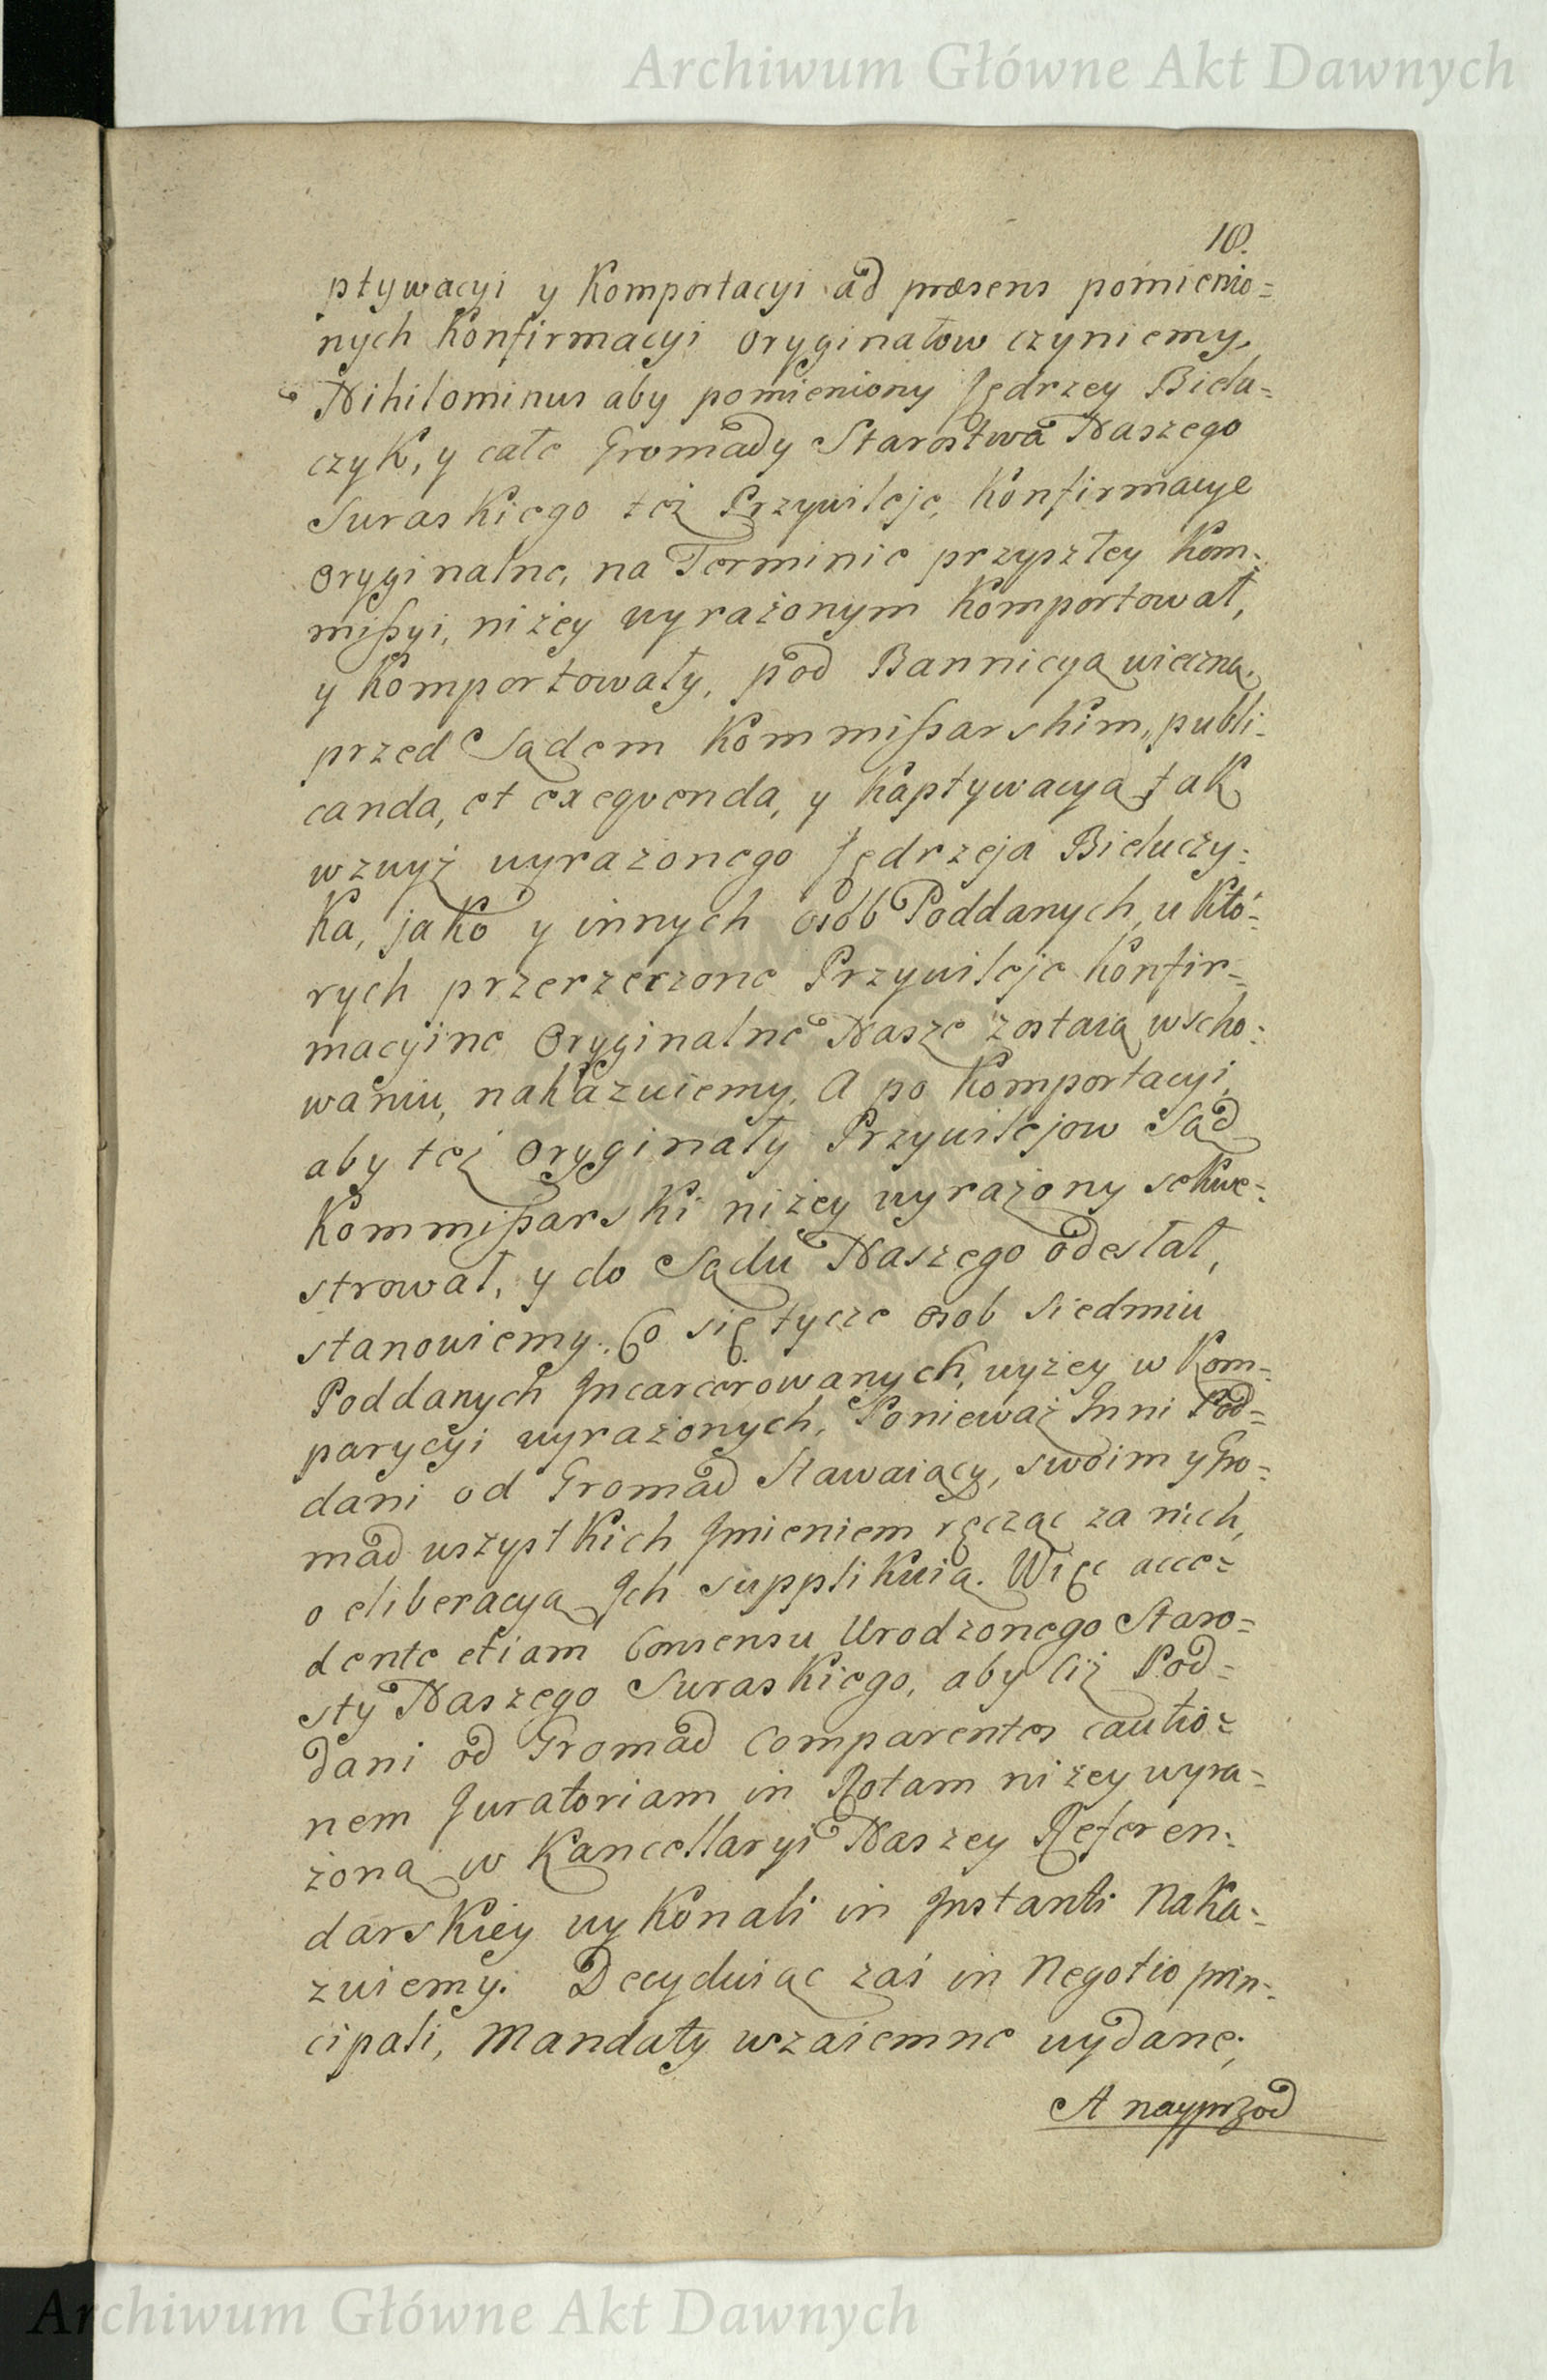 Archiwum Główne Akt Dawnych
10.
ptywacyi y Komportacyi ad præsens pomienio=
nych Konfirmacyi oryginałow czyniemy,
Nihilominus aby pomieniony Jędrzey Biela=
czyk, y całe Gromady Starostwa Naszego
Suraskiego też Przywileje, Konfirmacye
oryginalne, na Terminie przyszłey Kom=
mißyi, niżey wyrażonym Komportował,
y Komportowały, pod Bannicyą wieczną,
przed Sądem Kommißarskim, publi=
canda, et exeqvenda, y kaptywacyą tak
wzwyż wyrażonego Jędrzeja Bieluczy=
ka, jako y innych osób Poddanych, u któ=
rych przerzeczone Przywileje Konfir=
macyine Oryginalne Nasze zostaią w scho=
waniu, nakazuiemy. A po Komportacyi,
aby też oryginały Przywilejow Sąd
Kommißarski niżey wyrażony sekwe=
strował, y do Sądu Naszego odesłał,
stanowiemy. Co się tycze osob siedmiu
Poddanych Incarcerowanych, wyżey w Kom=
parycyi wyrażonych, Ponieważ Inni Pod=
dani od Gromad Stawaiący, swoim y Gro=
mad wszystkich Imieniem ręcząc za nich,
o eliberacyą Ich supplikuią. Więc acce=
dente etiam Consensu Urodzonego Staro=
sty Naszego Suraskiego, aby ciż Pod=
dani od Gromad Comparentes cautio=
nem Juratoriam in Rotam niżey wyra=
żoną w Kancellaryi Naszey Referen=
darskiey wykonali in Instanti Naka=
zuiemy. Decyduiąc zaś in Negotio prin=
cipali, Mandaty wzaiemne wydane;
A nayprzod
Archiwum Główne Akt Dawnych